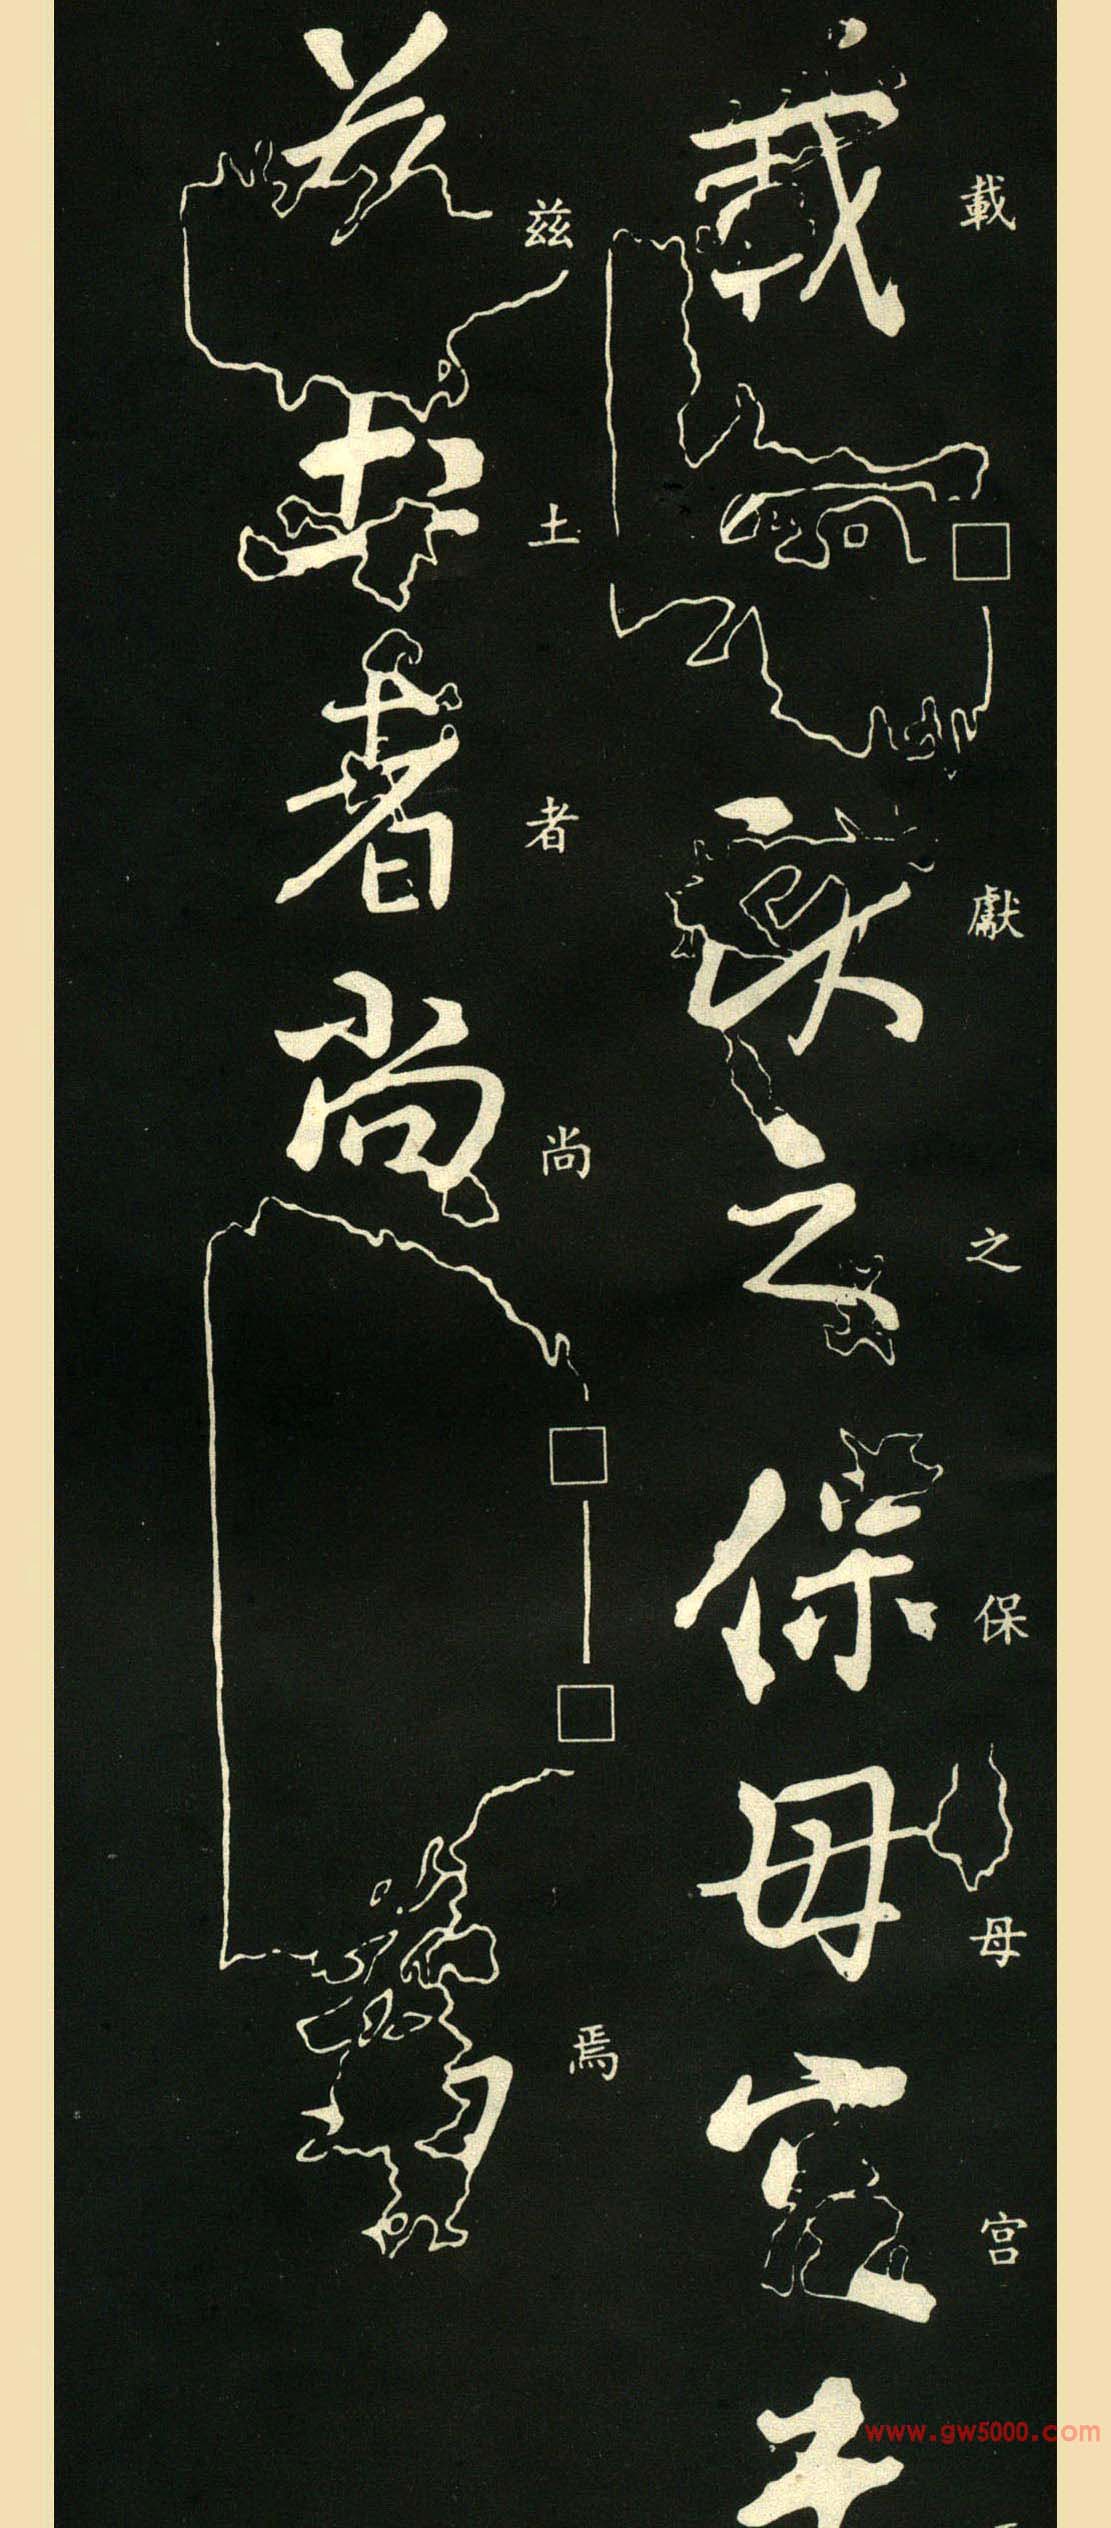 載□獻之保母宫
兹土者尚□□焉
www.gw5000.com